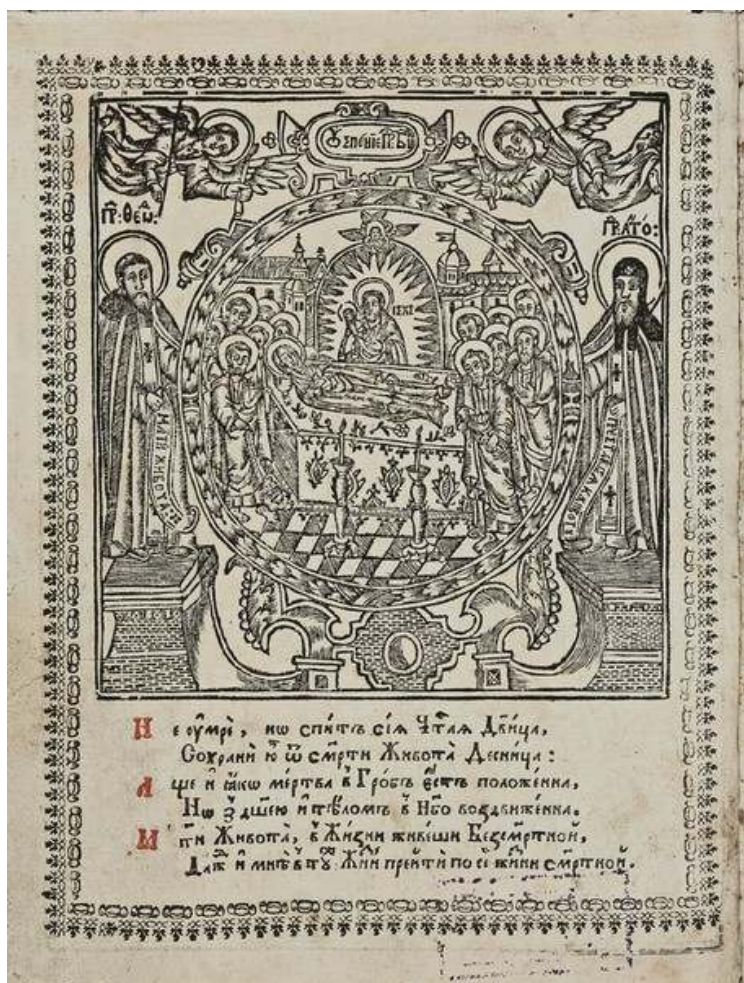 Оу҆спенїе Пр: Бц҃ы
Пр: Ѳеѡд:
Пр: А҆нто:
ІС ХС
МАТИ ЖИВОТА
Не оумре, но спитъ сїѧ Чтаѧ Двица,
Сохрани ю ѿ смрти Живота Десница:
Аще и ꙗкѡ мертва в Гробѣ єсть положенна,
Но з дшею и тѣломъ в Нбо воздвиженна.
Мти Живота, в Жизни живеши Безсмртной,
Даж и мнѣ в ту Жзнь прейти по сей жизни смртной.